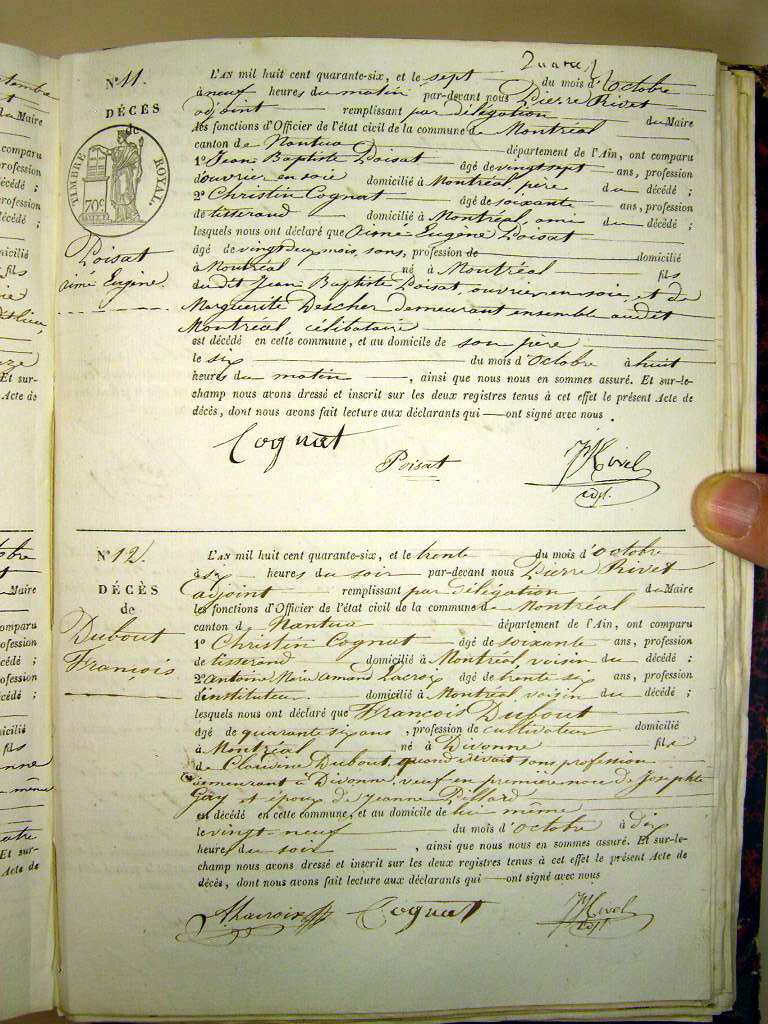 N° 11.
DÉCÈS
de
TIMBRE ROYAL.
70c
Poisat
aimé Eugène.
L'AN mil huit cent quarante-six, et le sept du mois d'Octobre
à neuf heures du matin par-devant nous Pierre Rivet
adjoint remplissant par délégation du Maire
les fonctions d'Officier de l'état civil de la commune de Montréal
canton de Nantua département de l'Ain, ont comparu
1° Jean Baptiste Poisat âgé de vingt sept ans, profession
d'ouvrier en soie domicilié à Montréal père du décédé ;
2° Christin Cognat âgé de soixante ans, profession
de tisserand domicilié à Montréal ami du décédé ;
lesquels nous ont déclaré que aimé Eugène Poisat
âgé de vingt deux mois, sans, profession de domicilié
à Montréal né à Montréal fils
dudit Jean Baptiste Poisat, ouvrier en soie, et de
Marguerite Descher demeurant ensemble audit
Montréal, célibataire
est décédé en cette commune, et au domicile de son père
le six du mois d'Octobre à huit
heures du matin , ainsi que nous nous en sommes assuré. Et sur-le-
champ nous avons dressé et inscrit sur les deux registres tenus à cet effet le présent Acte de
décès, dont nous avons fait lecture aux déclarants qui ont signé avec nous
Cognat
Poisat
Rivet
adjt.
N° 12.
DÉCÈS
de
Dubout
François
L'AN mil huit cent quarante-six, et le trente du mois d'Octobre
à six heures du soir par-devant nous Pierre Rivet
adjoint remplissant par délégation de Maire
les fonctions d'Officier de l'état civil de la commune de Montréal
canton de Nantua département de l'Ain, ont comparu
1° Christin Cognat âgé de soixante ans, profession
de tisserand domicilié à Montréal, voisin du décédé ;
2° Antoine Marie amand Lacroix âgé de trente six ans, profession
d'instituteur domicilié à Montréal voisin du décédé ;
lesquels nous ont déclaré que François Dubout
âgé de quarante six ans, profession de cultivateur domicilié
à Montréal né à Divonne fils
de Claudine Dubout, quand vivait sans profession
demeurant à Divonne, veuf en première noce de Josephte
Gay et époux de Jeanne Pillard
est décédé en cette commune, et au domicile de lui même
le vingt-neuf du mois d'octobre à dix
heures du soir , ainsi que nous nous en sommes assuré. Et sur-le-
champ nous avons dressé et inscrit sur les deux registres tenus à cet effet le présent Acte de
décès, dont nous avons fait lecture aux déclarants qui ont signé avec nous
ALacroix Cognat Rivet
adjt.